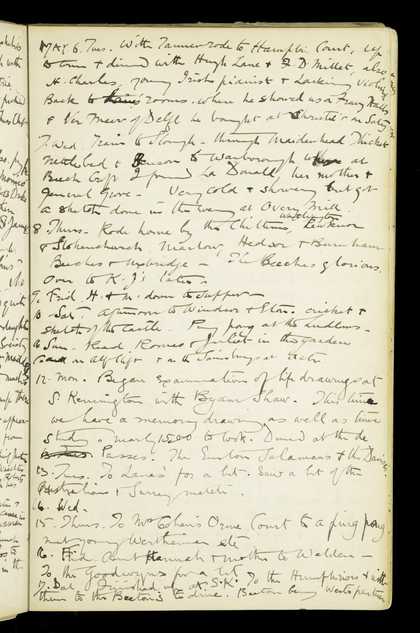 MAY 6. Tues. With Tanner rode to Hampton Court, up
to town & dined with Hugh Lane & F D Millet, also a
H. Charles, young Irish pianist & Larkin,
Back to rooms. where he showed us a Franz Hals
& Ver Meer of Delft he bought at Christie's on Saty
7. Wed Train to Slough - through Maidenhead Thicket
Nettlebed & Benson to Warborough at
Beech Croft I found La Donald, her mother &
General Gore - Very cold & showery but got
a sketch done in the evening at Overy Mill
8 Thurs. Rode home by the Chilterns,
& Stokenchurch Marlow, Hedsor & Burnham
Beeches & Uxbridge - The Beeches glorious.
Over to K. J's later -
9. Frid H. & M. down to supper -
10 Sat Afternoon to Windsor & Eton. cricket &
sketch of the Castle. Ping pong at the
11 Sun. Read Romeo & Juliet in the garden
at
12. Mon. Began Examinations of life drawings at
S Kensington with Byam Shaw. This time
we have a memory drawing as well as time
study - nearly 1500 to look. Dined at the de
Passes. The
13. Tues. To Lanes' for a bit. Saw a bit of the
Australians v Surrey match.
14. Wed.
15. Thurs. To Mrs Cohen's Orme Court to a ping pong
met young Wertheimer etc
16. Frid Aunt Hannah & mother to Waldon -
To the Goodwyns for a bit
17. Sat Finished up at S.K. To the Humphries & with
them to the Beeton's to dine. Beeton being